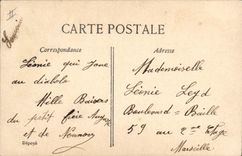 CARTE POSTALE
Correspondance
Léonie qui joue
au diabolo
Mille Baisers
du petit frère
et de Nounou
Adresse
Mademoiselle
Léonie Leyd
Boulevard-Baille
59 au 2me Etage
Marseille